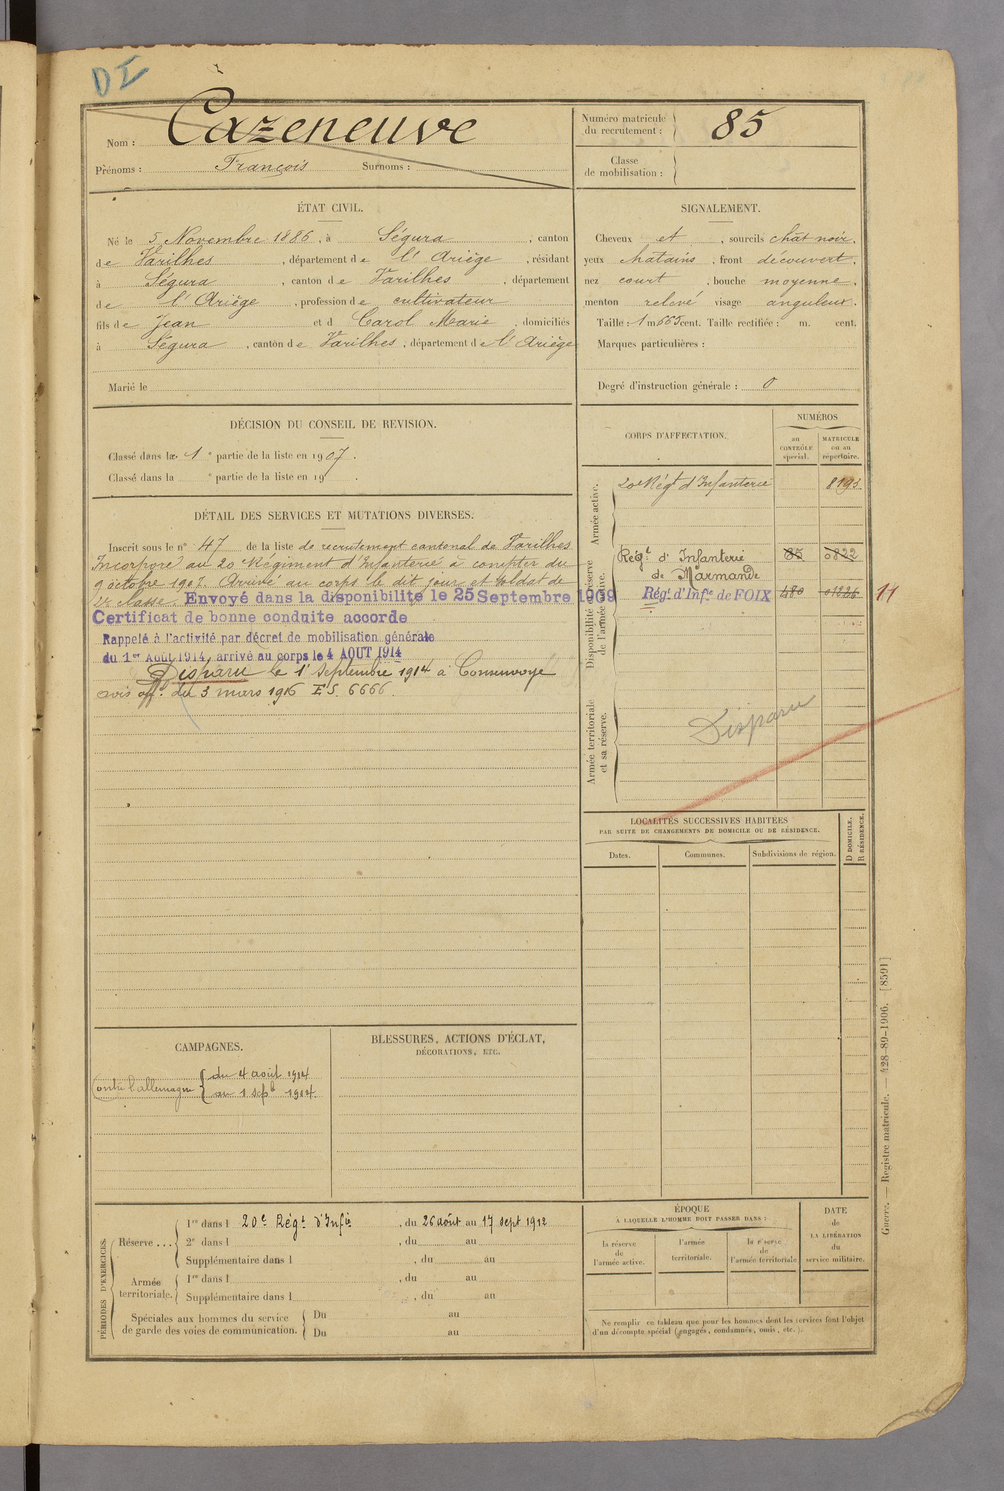 DI
Nom : Cazeneuve
Prénoms : François Surnoms :
Numéro matricule
du recrutement : 85
Classe
de mobilisation :
ÉTAT CIVIL.
Né le 5 Novembre 1886, à Ségura, canton
de Varilhes, département de l'Ariège, résidant
à Ségura, canton de Varilhes, département
de l'Ariège, profession de cultivateur
fils de Jean et d Carol Marie, domiciliés
à Ségura, canton de Varilhes, département de l'Ariège
Marié le
SIGNALEMENT.
Cheveux et, sourcils chât noir.
yeux chatains, front découvert,
nez court, bouche moyenne,
menton relevé visage anguleux.
Taille : 1 m 665 cent. Taille rectifiée : m. cent.
Marques particulières :
Degré d'instruction générale : 0
DÉCISION DU CONSEIL DE REVISION.
Classé dans la 1e partie de la liste en 1907.
Classé dans la e partie de la liste en 19 .
DÉTAIL DES SERVICES ET MUTATIONS DIVERSES.
Inscrit sous le n° 47 de la liste de recrutement cantonal de Varilhes
Incorporé au 20 Régiment d'Infanterie à compter du
9 octobre 1907. Arrivé au corps le dit jour et soldat de
2e classe. Envoyé dans la disponibilité le 25 Septembre 1909
Certificat de bonne conduite accorde
Rappelé à l'activité par décret de mobilisation générale
du 1er AOUT 1914, arrivé au corps le 4 AOUT 1914
Disparu le 1r septembre 1914 à
avis off. du 3 mars 1916 ES. 6666.
CORPS D'AFFECTATION.
NUMÉROS
au
CONTRÔLE
spécial.
MATRICULE
ou au
répertoire.
Armée active.
20e Régt d'Infanterie 8193
Disponibilité et réserve
de l'armée active.
Régt d'Infanterie 85 0822
de Marmande
Régt d'Infie de FOIX 480 11
Armée territoriale
et sa réserve.
Disparu
LOCALITÉS SUCCESSIVES HABITÉES
PAR SUITE DE CHANGEMENTS DE DOMICILE OU DE RÉSIDENCE.
D DOMICILE.
R RÉSIDENCE.
Dates. Communes. Subdivisions de région.
CAMPAGNES.
Contre l'allemagne du 4 août 1914
au 1 sepb 1914.
BLESSURES, ACTIONS D'ÉCLAT,
DÉCORATIONS, ETC.
PÉRIODES D'EXERCICES.
Réserve ... 1re dans l 20e Régt d'Infie, du 26 août au 17 sept 1912
2e dans l , du au
Supplémentaire dans l , du au
Armée
territoriale. 1re dans l , du au
Supplémentaire dans l , du au
Spéciales aux hommes du service
de garde des voies de communication. Du au
Du au
ÉPOQUE
À LAQUELLE L'HOMME DOIT PASSER DANS :
la réserve
de
l'armée active.
l'armée
territoriale.
la réserve
de
l'armée territoriale
DATE
de
LA LIBÉRATION
du
service militaire.
Ne remplir ce tableau que pour les hommes dont les services font l'objet
d'un décompte spécial (engagés, condamnés, omis, etc.).
Guerre. — Registre matricule. — 428-89-1906. [8591]